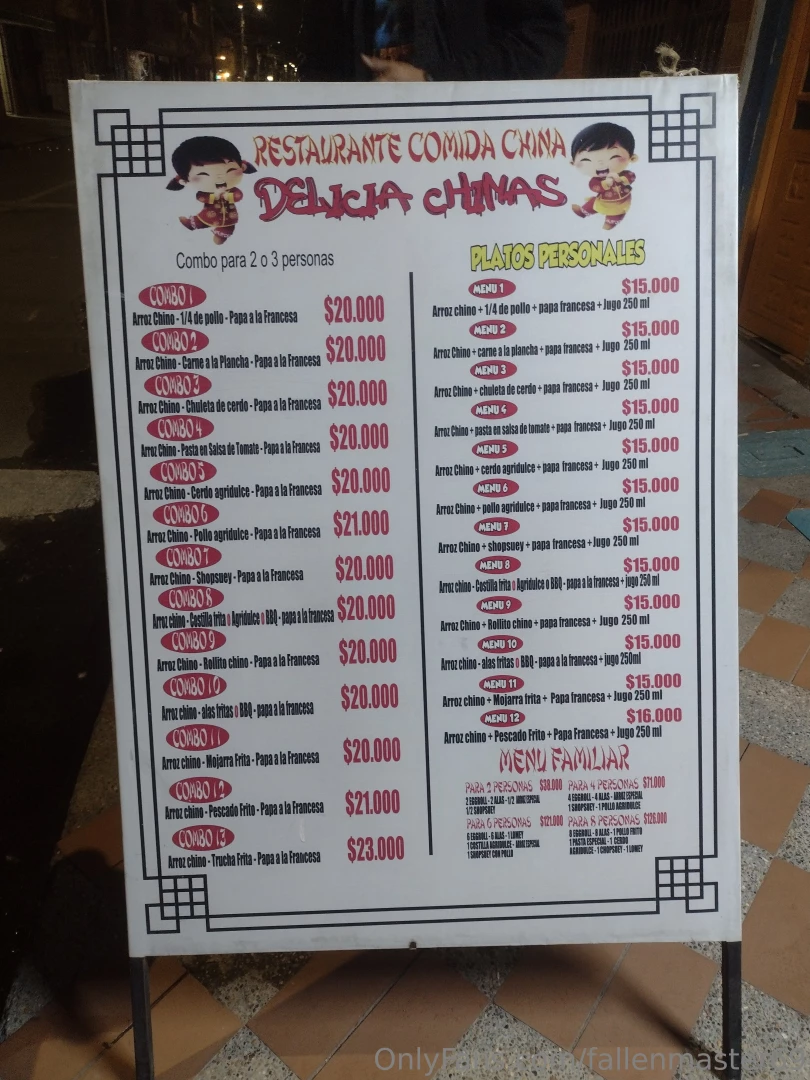 RESTAURANTE COMIDA CHINA
DELICIA CHINAS
Combo para 2 o 3 personas
COMBO 1
Arroz Chino - 1/4 de pollo - Papa a la Francesa $20.000
COMBO 2
Arroz Chino - Carne a la Plancha - Papa a la Francesa $20.000
COMBO 3
Arroz Chino - Chuleta de cerdo - Papa a la Francesa $20.000
COMBO 4
Arroz Chino - Pasta en Salsa de Tomate - Papa a la Francesa $20.000
COMBO 5
Arroz Chino - Cerdo agridulce - Papa a la Francesa $20.000
COMBO 6
Arroz Chino - Pollo agridulce - Papa a la Francesa $21.000
COMBO 7
Arroz Chino - Shopsuey - Papa a la Francesa $20.000
COMBO 8
Arroz chino - Costilla frita o Agridulce o BBQ - papa a la francesa $20.000
COMBO 9
Arroz Chino - Rollito chino - Papa a la Francesa $20.000
COMBO 10
Arroz chino - alas fritas o BBQ - papa a la francesa $20.000
COMBO 11
Arroz chino - Mojarra Frita - Papa a la Francesa $20.000
COMBO 12
Arroz chino - Pescado Frito - Papa a la Francesa $21.000
COMBO 13
Arroz chino - Trucha Frita - Papa a la Francesa $23.000
PLATOS PERSONALES
MENU 1 $15.000
Arroz chino + 1/4 de pollo + papa francesa + Jugo 250 ml
MENU 2 $15.000
Arroz Chino + carne a la plancha + papa francesa + Jugo 250 ml
MENU 3 $15.000
Arroz Chino + chuleta de cerdo + papa francesa + Jugo 250 ml
MENU 4 $15.000
Arroz Chino + pasta en salsa de tomate + papa francesa + Jugo 250 ml
MENU 5 $15.000
Arroz Chino + cerdo agridulce + papa francesa + Jugo 250 ml
MENU 6 $15.000
Arroz Chino + pollo agridulce + papa francesa + Jugo 250 ml
MENU 7 $15.000
Arroz Chino + shopsuey + papa francesa + Jugo 250 ml
MENU 8 $15.000
Arroz chino - Costilla frita o Agridulce o BBQ - papa a la francesa + jugo 250 ml
MENU 9 $15.000
Arroz Chino + Rollito chino + papa francesa + Jugo 250 ml
MENU 10 $15.000
Arroz chino - alas fritas o BBQ - papa a la francesa + jugo 250ml
MENU 11 $15.000
Arroz chino + Mojarra frita + Papa francesa + Jugo 250 ml
MENU 12 $16.000
Arroz chino + Pescado Frito + Papa Francesa + Jugo 250 ml
MENU FAMILIAR
PARA 2 PERSONAS $38.000
2 EGGROLL - 2 ALAS - 1/2 ARROZ ESPECIAL
1/2 SHOPSUEY
PARA 4 PERSONAS $71.000
4 EGGROLL - 4 ALAS - ARROZ ESPECIAL
1 SHOPSUEY - 1 POLLO AGRIDULCE
PARA 6 PERSONAS $121.000
6 EGGROLL - 6 ALAS - 1 LOMEY
1 COSTILLA AGRIDULCE - ARROZ ESPECIAL
1 SHOPSUEY CON POLLO
PARA 8 PERSONAS $126.000
8 EGGROLL - 8 ALAS - 1 POLLO FRITO
1 PASTA ESPECIAL - 1 CERDO
AGRIDULCE - 1 CHOPSUEY - 1 LOMEY